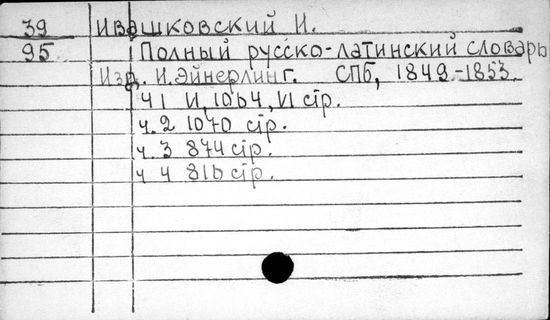 39 Ивашковский И.
95 Полный русско-латинский словарь
Изд. И. Эйнерлинг. СПб, 1849-1853.
ч 1 II, 1064, VI стр.
ч. 2 1070 стр.
ч. 3 874 стр.
ч 4 816 стр.